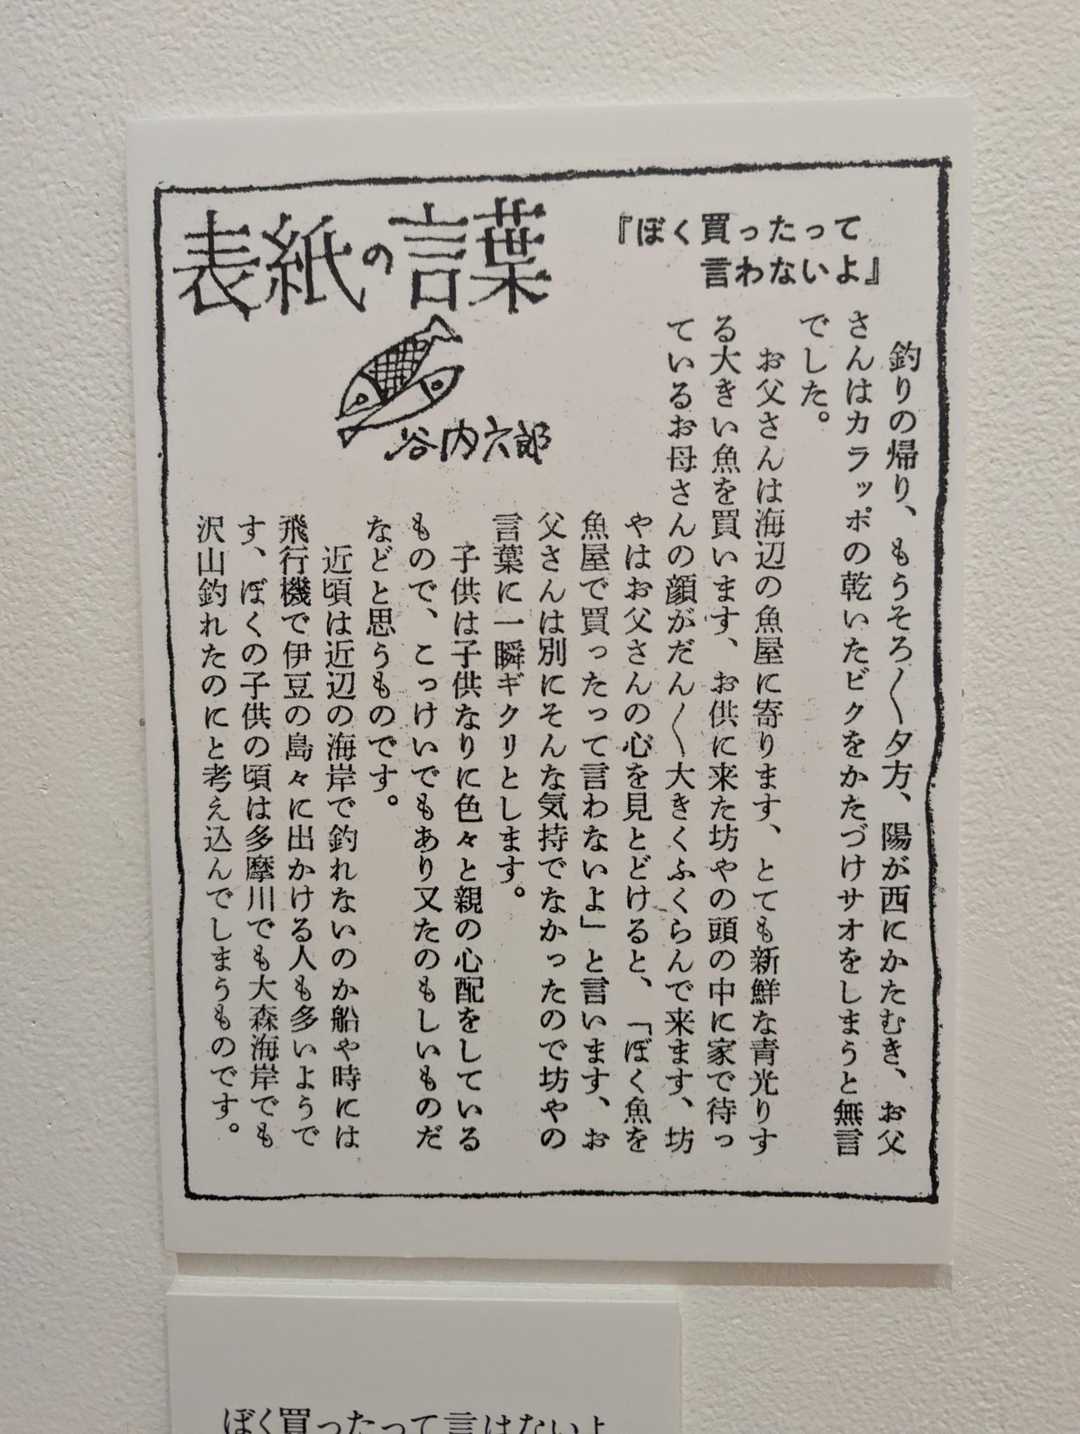 表紙の言葉
谷内六郎
『ぼく買ったって
言わないよ』
釣りの帰り、もうそろ〱夕方、陽が西にかたむき、お父
さんはカラッポの乾いたビクをかたづけサオをしまうと無言
でした。
お父さんは海辺の魚屋に寄ります、とても新鮮な青光りす
る大きい魚を買います、お供に来た坊やの頭の中に家で待っ
ているお母さんの顔がだん〱大きくふくらんで来ます、坊
やはお父さんの心を見とどけると、「ぼく魚を
魚屋で買ったって言わないよ」と言います、お
父さんは別にそんな気持でなかったので坊やの
言葉に一瞬ギクリとします。
子供は子供なりに色々と親の心配をしている
もので、こっけいでもあり又たのもしいものだ
などと思うものです。
近頃は近辺の海岸で釣れないのか船や時には
飛行機で伊豆の島々に出かける人も多いようで
す、ぼくの子供の頃は多摩川でも大森海岸でも
沢山釣れたのにと考え込んでしまうものです。
ぼく買ったって言はないよ